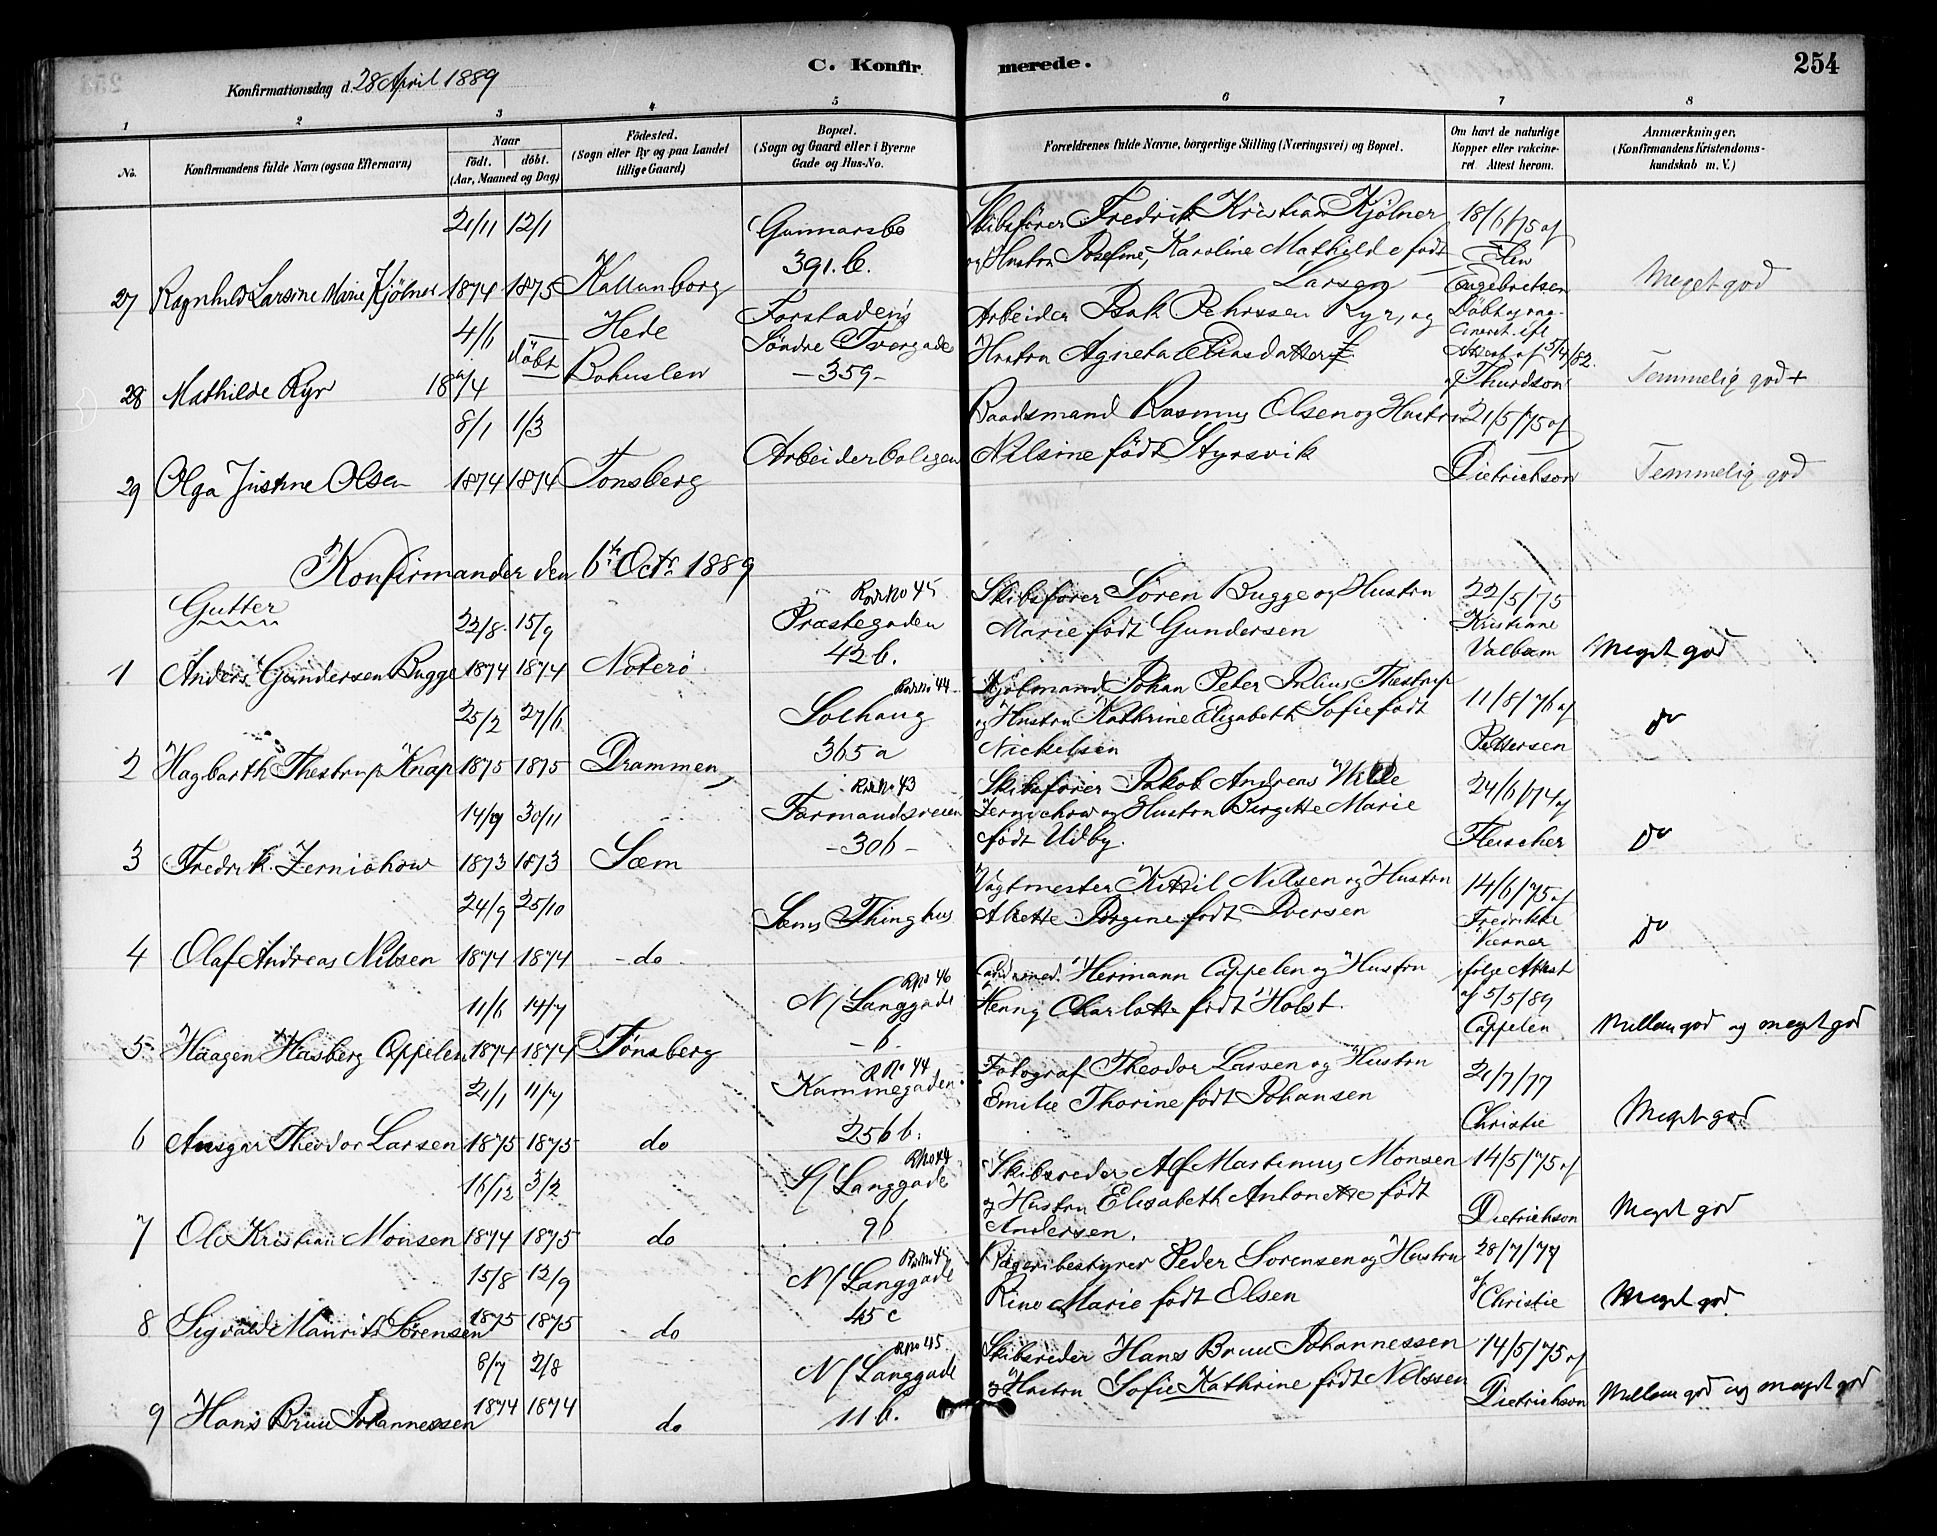 254
C. Konfirmerede.
Konfirmationsdag d. 28 April 1889
1 2 3 4 5 6 7 8
No.
Konfirmandens fulde Navn (ogsaa Efternavn)
Naar
födt. döbt.
(Aar, Maaned og Dag)
Födested.
(Sogn eller By og paa Landet
tillige Gaard)
Bopæl.
(Sogn og Gaard eller i Byerne
Gade og Hus-No.
Forældrenes fulde Navne, borgerlige Stilling (Næringsvei) og Bopæl.
Om havt de naturlige
Kopper eller vakcine-
ret Attest herom.
Anmærkninger.
(Konfirmandens Kristendoms-
kundskab m. V.)
27 Ragnhild Larsine Marie Kjölner
21/11 12/1
1874 1875
Kallunborg
Gunnarsbo
391.b.
Skibsfører Fredrik Kristian Kjölner
og Hustru Josefine, Karoline Mathilde født
Larsen
18/6/75 af
Elen
Engebretsen
Meget god
28 Mathilde Ryr
4/6
18 /74
döbt
Hede
Bohuslen
Forstadens
Söndre Tvergade
-359-
Arbeider Isak Pehrssen Ryr, og
Hustru Agneta Eliasdatter
Döbt og vag-
cineret ifl
Attest af 5/4/82.
af Thurdson
Temmelig god +
29 Olga Justine Olsen
8/1 1/3
1874 1874
Tonsberg
Arbeiderboligen
Baadsmand Rasmus Olsen og Hustru
Nilsine født Styrsvik
21/5/75 af
Dietrichson
Temmelig god
Konfirmander den 6te Octr. 1889
Gutter
1 Anders Gundersen Bugge
22/8 15/9
1874 1874
Noterö
Rod No 45
Præstegaden
42 b.
Skibsfører Søren Bugge og Hustru
Marie født Gundersen
22/5/75
Kristiane
Valbom
Meget god
2 Hagbarth Thestrup Knap
25/2 27/6
1875 1875
Drammen
Rod No 44
Solhaug
365 a
Johan Peter Julius Thestrup
og Hustru Kathrine Elizabeth Sofie født
Nickelsen
11/8/76 af
Pettersen
Do
3 Fredrik Zernichow
14/9 30/11
1873 1873
Sæm
Rod No 43
Farmandsveien
-306-
Skibsfører Jakob Andreas Wille
Zernichow og Hustru Birgitte Marie
født Udby.
24/6/74 af
Fleischer
Do
4 Olaf Andreas Nilsen
24/9 25/10
1874 1874
- do
Sems Thinghus
Vagtmester Kittil Nilsen og Hustru
Alette Jorgine født Iversen
14/6/75 af
Fredrikke
Værner
Do
5 Haagen Husberg Cappelen
11/6 14/7
1874 1874
Tønsberg
R No 46
N/ Langgade
- 6
Cand. med. Hermann Cappelen og Hustru
Henny Charlotte født Holst.
ifølge Attest
af 5/5/89
Cappelen
Mellem god og meget god
6 Ansgar Theodor Larsen
21/1 11/7
1875 1875
do
R No 44
Kammegaden
256 b.
Fotograf Theodor Larsen og Hustru
Emilie Thorine født Johansen
21/7/77
Christie
Meget god
7 Ole Kristian Monsen
16/12 3/2
1874 1875
do
R No 44
S/ Langgade
96
Skibsreder Alf Martinius Monsen
og Hustru Elisabeth Antonette født
Andersen.
14/5/75 af
Dietrichson
Meget god
8 Sigvald Maurits Sørensen
15/8 12/9
1875 1875
do
Rod No 45
N/ Langgade
45 c
Rægeribestyrer Peder Sorensen og Hustru
Rine Marie født Olsen
28/7/77
af Christie
Meget god
9 Hans Bruu Johannessen
8/7 2/8
1874 1874
do
R No 45
N/ Langgade
11 b.
Skibsreder Hans Bruu Johannessen
og Hustru Sofie Kathrine født Nilssen
14/5/75 af
Dietrichson
Mellem god og meget god